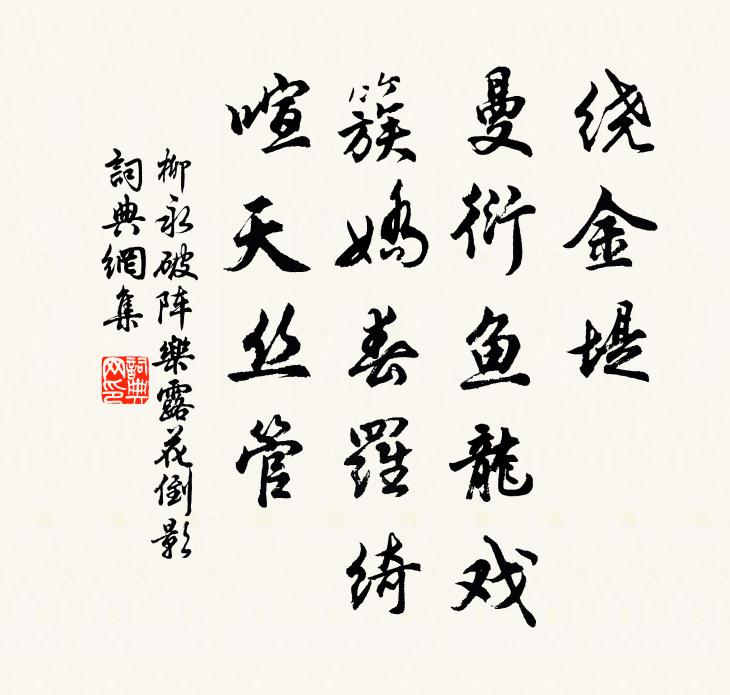 绕金堤
曼衍鱼龙戏
簇娇春罗绮
喧天丝管
柳永破阵乐露花倒影
词典网集
词典网印